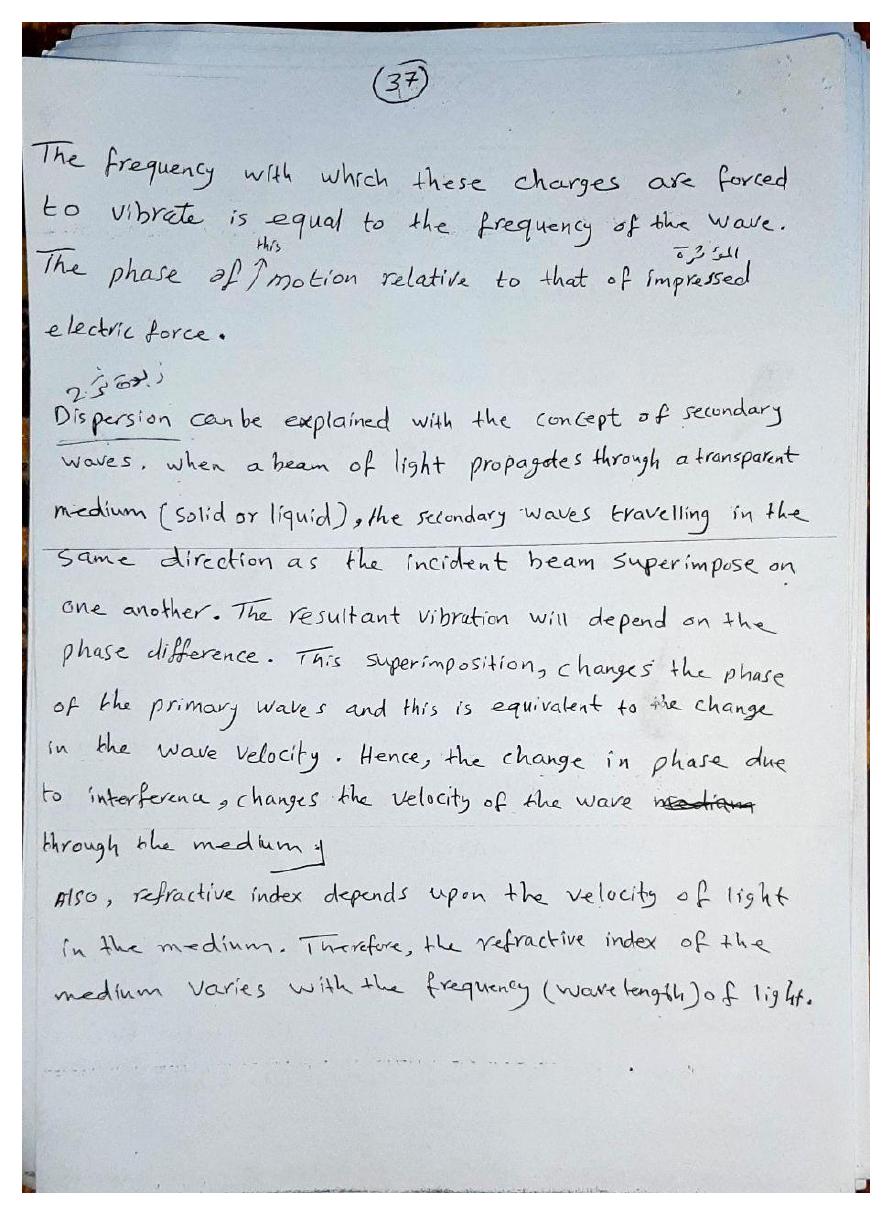 37
The frequency with which these charges are forced
to vibrate is equal to the frequency of the wave.
this
المؤثرة
The phase of ↑ motion relative to that of impressed
electric force.
Dispersion can be explained with the concept of secondary
waves. when a beam of light propagates through a transparent
medium (solid or liquid), the secondary waves travelling in the
same direction as the incident beam superimpose on
one another. The resultant vibration will depend on the
phase difference. This superimposition, changes the phase
of the primary waves and this is equivalent to the change
in the wave velocity. Hence, the change in phase due
to interference, changes the velocity of the wave
through the medium
Also, refractive index depends upon the velocity of light
in the medium. Therefore, the refractive index of the
medium varies with the frequency (wave length) of light.